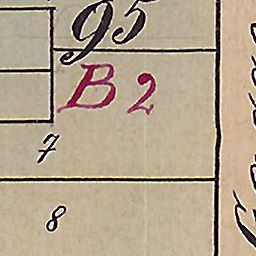 95
B 2
7
8